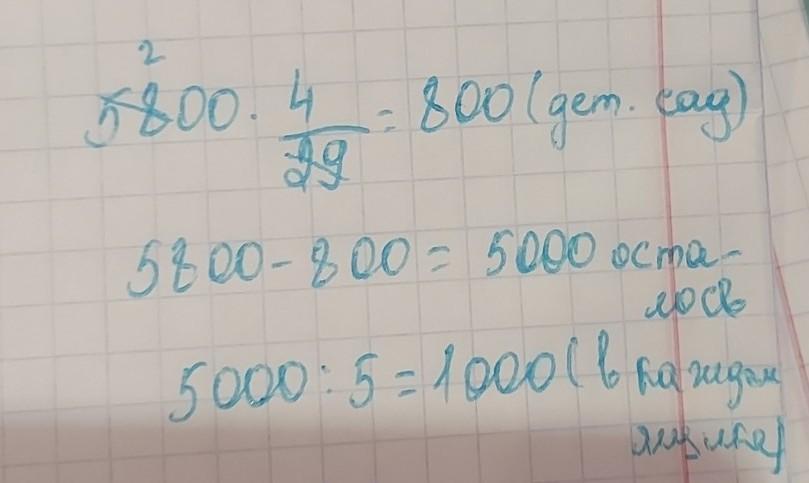 2
5800 · 4/29 = 800 (дет. сад)
5800 - 800 = 5000 оста-
лось
5000 : 5 = 1000 (в каждом
ящике)